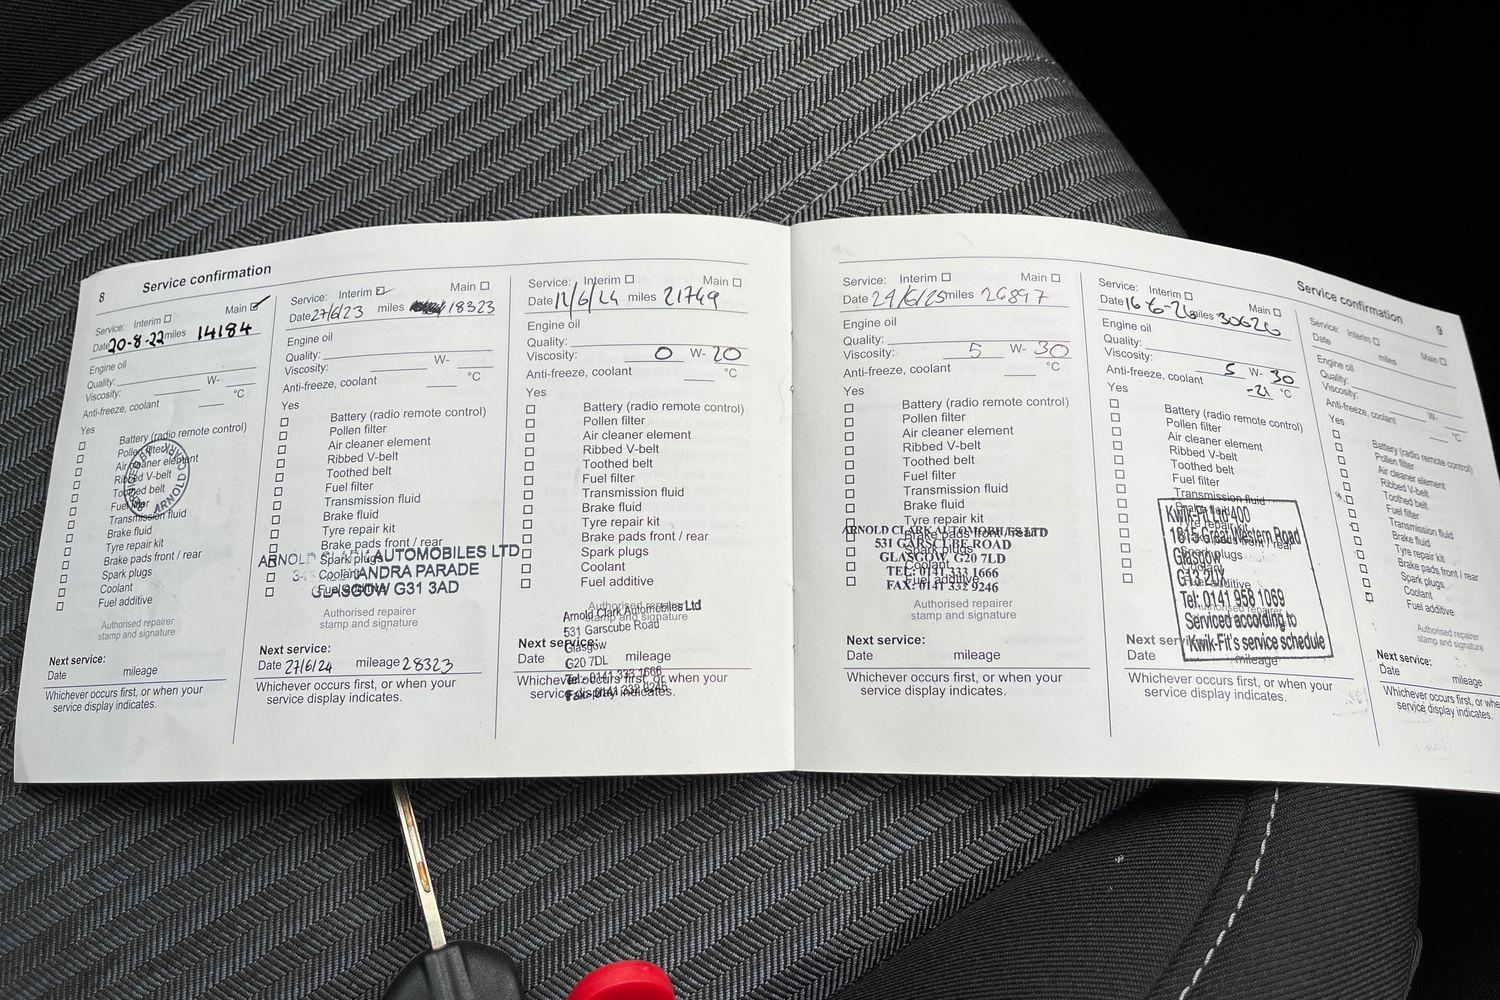 8
Service confirmation
Service: Interim Main
Date 20-8-22 miles 14184
Engine oil
Quality:
Viscosity: W-
Anti-freeze, coolant °C
Yes
Battery (radio remote control)
Pollen filter
Air cleaner element
Ribbed V-belt
Toothed belt
Fuel filter
Transmission fluid
Brake fluid
Tyre repair kit
Brake pads front / rear
Spark plugs
Coolant
Fuel additive
SERVICED BY
ARNOLD CLARK
Authorised repairer
stamp and signature
Next service:
Date mileage
Whichever occurs first, or when your
service display indicates.
Service: Interim Main
Date 27/6/23 miles 18323
Engine oil
Quality:
Viscosity: W-
Anti-freeze, coolant °C
Yes
Battery (radio remote control)
Pollen filter
Air cleaner element
Ribbed V-belt
Toothed belt
Fuel filter
Transmission fluid
Brake fluid
Tyre repair kit
Brake pads front / rear
Spark plugs
Coolant
Fuel additive
ARNOLD CLARK AUTOMOBILES LTD
ANDRA PARADE
GLASGOW G31 3AD
Authorised repairer
stamp and signature
Next service:
Date 27/6/24 mileage 28323
Whichever occurs first, or when your
service display indicates.
Service: Interim Main
Date 12/6/24 miles 21749
Engine oil
Quality:
Viscosity: 0 W- 20
Anti-freeze, coolant °C
Yes
Battery (radio remote control)
Pollen filter
Air cleaner element
Ribbed V-belt
Toothed belt
Fuel filter
Transmission fluid
Brake fluid
Tyre repair kit
Brake pads front / rear
Spark plugs
Coolant
Fuel additive
Authorised repairer
stamp and signature
Arnold Clark Automobiles Ltd
531 Garscube Road
Glasgow
G20 7DL
Tel: 0141 332 1666
Fax: 0141 332 9246
Next service:
Date mileage
Whichever occurs first, or when your
service display indicates.
Service: Interim Main
Date 24/6/25 miles 26897
Engine oil
Quality:
Viscosity: 5 W- 30
Anti-freeze, coolant °C
Yes
Battery (radio remote control)
Pollen filter
Air cleaner element
Ribbed V-belt
Toothed belt
Fuel filter
Transmission fluid
Brake fluid
Tyre repair kit
Brake pads front / rear
Spark plugs
Coolant
Fuel additive
ARNOLD CLARK AUTOMOBILES LTD
531 GARSCUBE ROAD
GLASGOW, G20 7LD
TEL: 0141 333 1666
FAX: 0141 332 9246
Authorised repairer
stamp and signature
Next service:
Date mileage
Whichever occurs first, or when your
service display indicates.
Service confirmation
9
Service: Interim Main
Date 16-6-26 miles 30626
Engine oil
Quality:
Viscosity: 5 W- 30
Anti-freeze, coolant -21 °C
Yes
Battery (radio remote control)
Pollen filter
Air cleaner element
Ribbed V-belt
Toothed belt
Fuel filter
Transmission fluid
Brake fluid
Tyre repair kit
Brake pads front / rear
Spark plugs
Coolant
Fuel additive
Kwik-Fit
400
1815 Great Western Road
Glasgow
G13 2UY
Tel: 0141 958 1069
Serviced according to
Kwik-Fit's service schedule
Authorised repairer
Next service:
Date mileage
Whichever occurs first, or when your
service display indicates.
Service: Interim Main
Date miles
Engine oil
Quality:
Viscosity: W-
Anti-freeze, coolant °C
Yes
Battery (radio remote control)
Pollen filter
Air cleaner element
Ribbed V-belt
Toothed belt
Fuel filter
Transmission fluid
Brake fluid
Tyre repair kit
Brake pads front / rear
Spark plugs
Coolant
Fuel additive
Authorised repairer
stamp and signature
Next service:
Date mileage
Whichever occurs first, or whe
service display indicates.